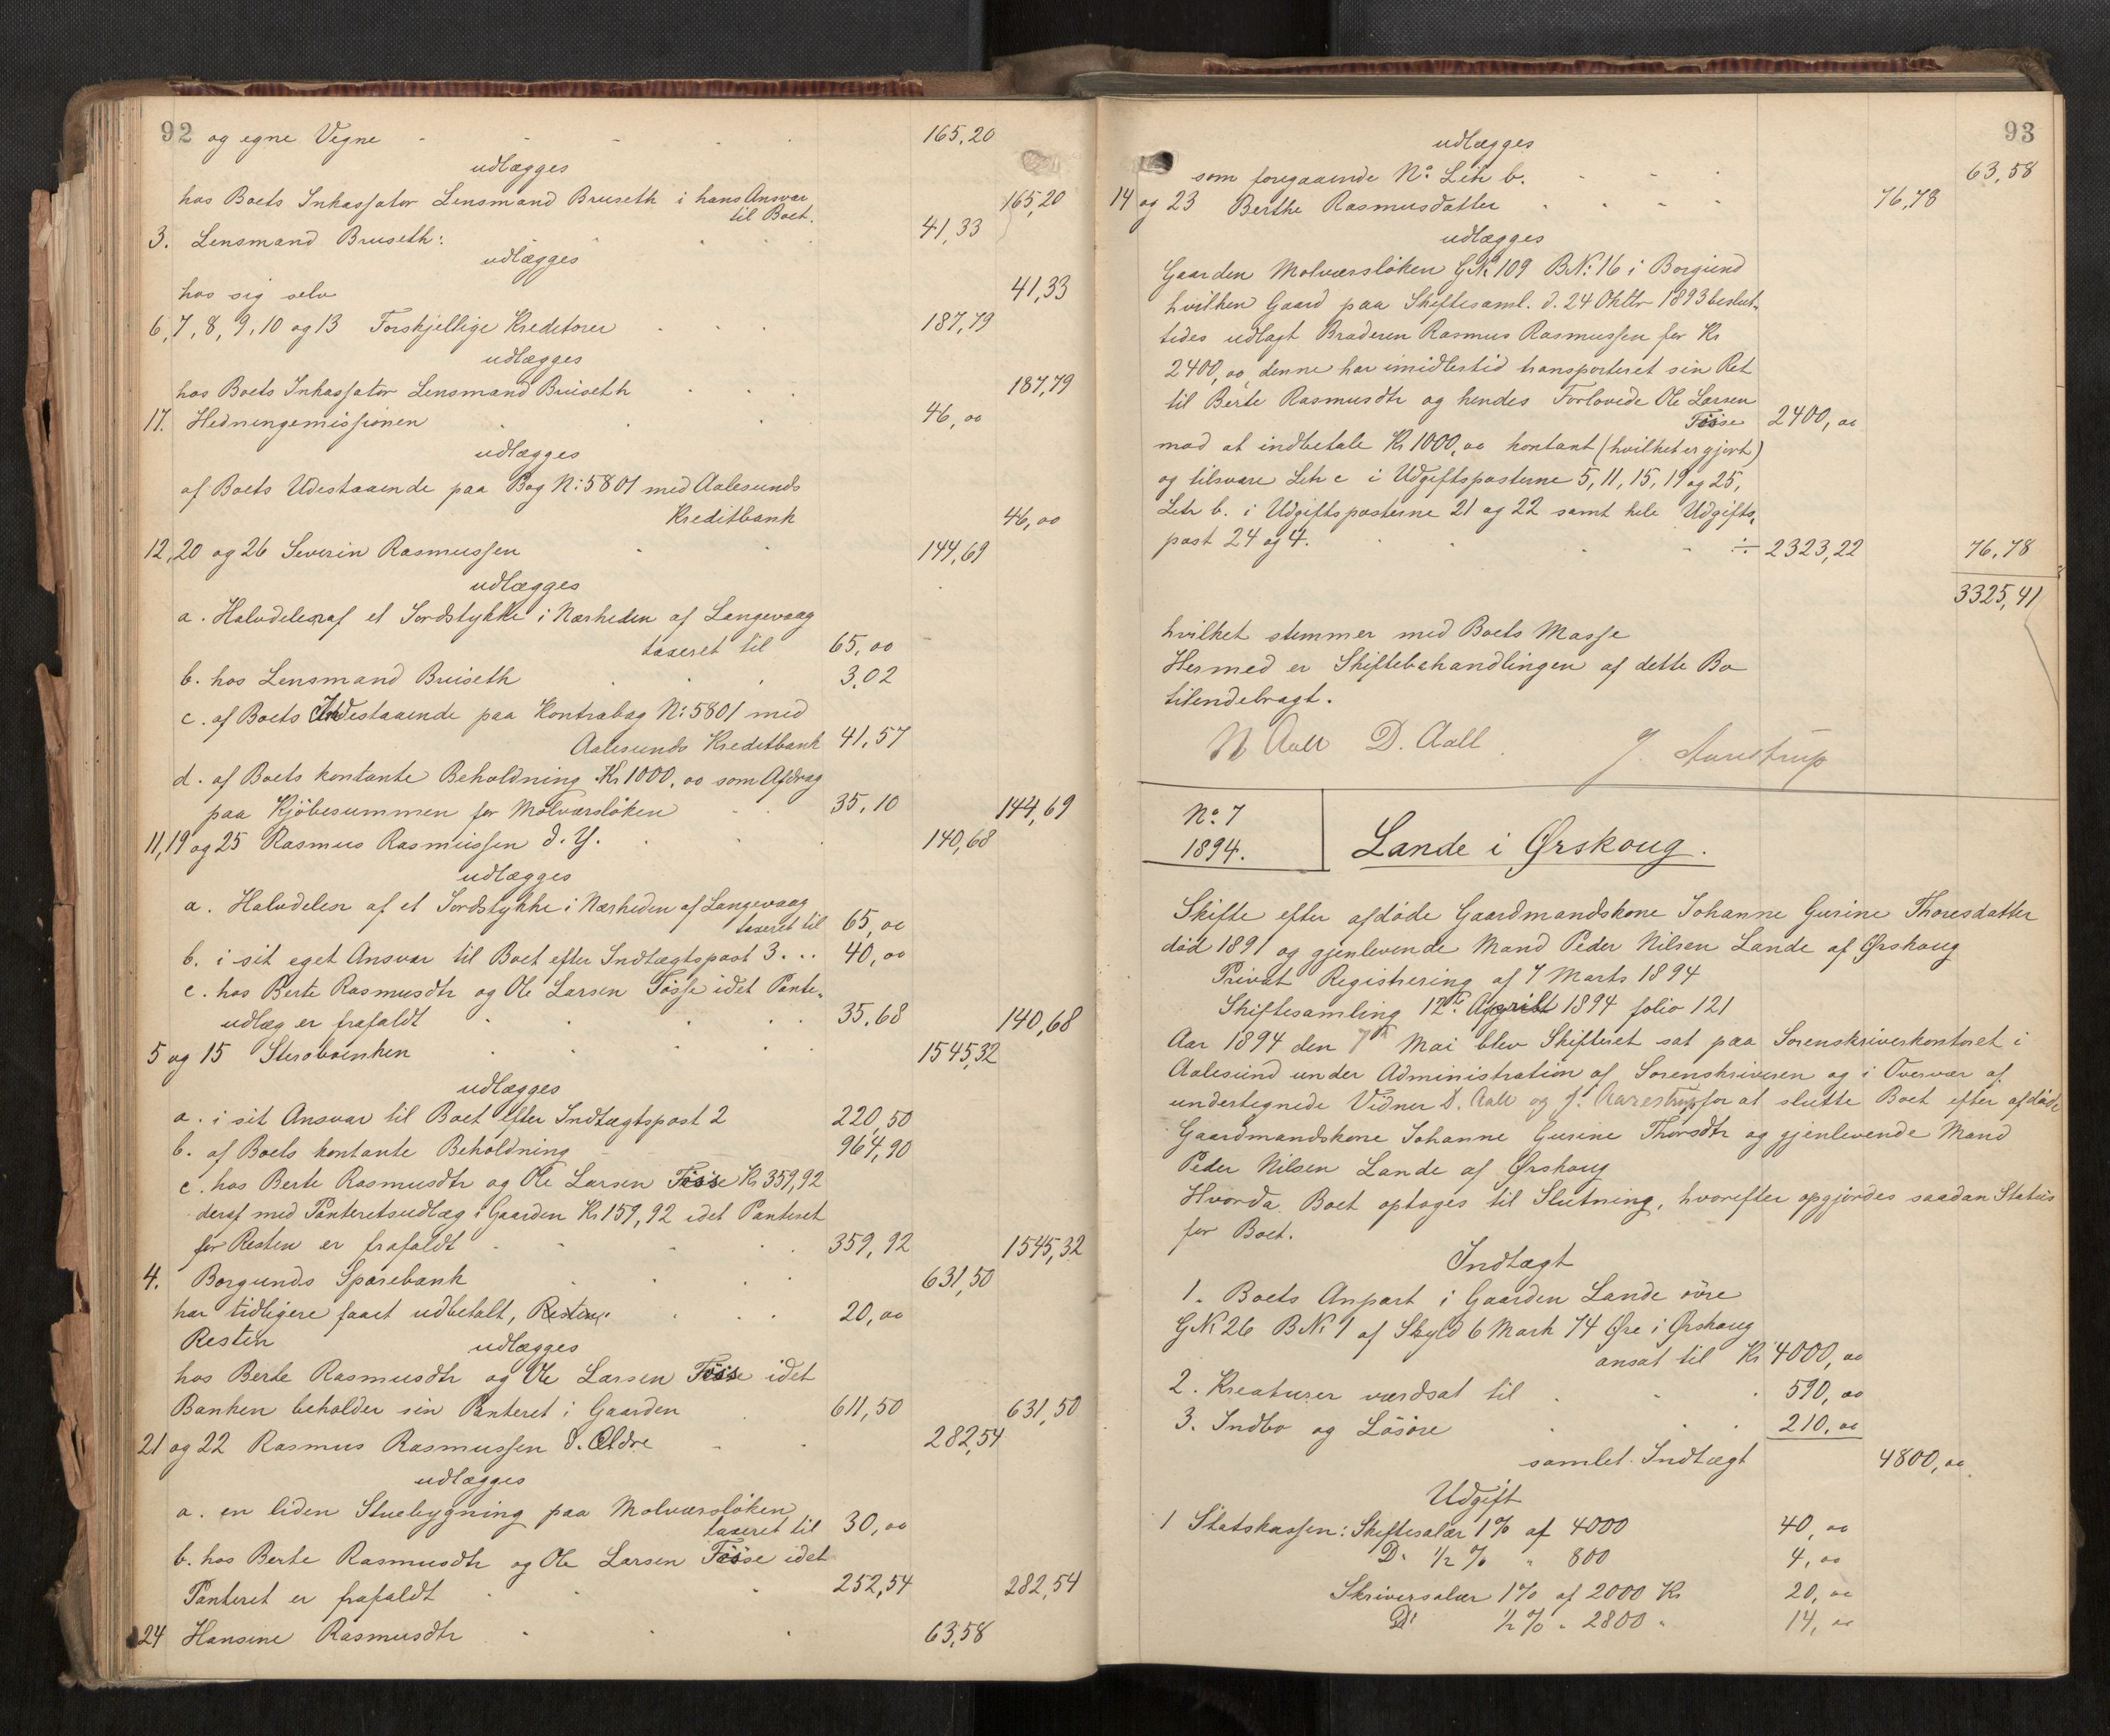 92 og egne Vegne 165,20
udlægges
hos Boets Inkassator Lensmand Bruseth i hans Ansvar
til Boet. 165,20
3. Lensmand Bruseth: 41,33
udlægges
hos sig selv 41,33
6, 7, 8, 9, 10 og 13 Forskjellige Kreditorer 187,79
udlægges
hos Boets Inkassator Lensmand Bruseth 187,79
17. Hedningemissionen 46,00
udlægges
af Boets Udestaaende paa Bog N: 5801 med Aalesunds
Kreditbank 46,00
12, 20 og 26 Severin Rasmussen 144,69
udlægges
a. Halvdelen af et Jordstykke i Nærheden af Langevaag
taxeret til 65,00
b. hos Lensmand Bruseth 3,02
c. af Boets Indestaaende paa Kontrabog N: 5801 med
Aalesunds Kreditbank 41,57
d. af Boets kontante Beholdning Kr 1000,00 som Afdrag
paa Kjöbesummen for Molværslöken 35,10 144,69
11, 19 og 25 Rasmus Rasmussen d. Y. 140,68
udlægges
a. Halvdelen af et Jordstykke i Nærheden af Langevaag
taxeret til 65,00
b. i sit eget Ansvar til Boet efter Indtægtspost 3... 40,00
c. hos Berte Rasmusdtr og Ole Larsen Fösse idet Pante-
udlæg er frafaldt 35,68 140,68
5 og 15 Steroboenken 1545,32
udlægges
a. i sit Ansvar til Boet efter Indtægtspost 2 220,50
b. af Boets kontante Beholdning 964,90
c. hos Berte Rasmusdtr og Ole Larsen Fösse Kr 359,92
deraf med Panteretsudlæg i Gaarden Kr 159,92 idet Panteret
for Resten er frafaldt 359,92 1545,32
4. Borgunds Sparebank 631,50
har tidligere faaet udbetalt, Resten. 20,00
Resten udlægges
hos Berte Rasmusdtr og Ole Larsen Fösse idet
Banken beholder sin Panteret i Gaarden 611,50 631,50
21 og 22 Rasmus Rasmussen d. Eldre 282,54
udlægges
a. en liden Stuebygning paa Molværslöken
taxeret til 30,00
b. hos Berte Rasmusdtr og Ole Larsen Fösse idet
Panteret er frafaldt 252,54 282,54
24 Hansine Rasmusdtr 63,58
93
udlægges
som foregaaende No Litr b. 63,58
14 og 23 Berthe Rasmusdatter 76,78
udlægges
Gaarden Molværslöken GN: 109 BN: 16 i Borgund
hvilken Gaard paa Skiftesaml. d. 24 Oktbr 1893 beslut-
tedes udlagt Broderen Rasmus Rasmussen for Kr
2400,00 denne har imidlertid transporteret sin Ret
til Berte Rasmusdtr og hendes Forlovede Ole Larsen
Fösse 2400,00
mod at indbetale Kr 1000,00 kontant (hvilket er gjort)
og tilsvare Litr c i Udgiftsposterne 5, 11, 15, 19 og 25,
Litr b. i Udgiftsposterne 21 og 22 samt hele Udgifts-
post 24 og 4. ÷ 2323,22 76,78
3325,41
hvilket stemmer med Boets Masse
Hermed er Skiftebehandlingen af dette Bo
tilendebragt.
N Aall D. Aall J. Aarestrup
No 7
1894.
Lande i Ørskoug.
Skifte efter afdöde Gaardmandskone Johanne Gurine Thoresdatter
död 1891 og gjenlevende Mand Peder Nilsen Lande af Ørskoug
Privat Registrering af 7 Marts 1894
Skiftesamling 12te April 1894 folio 121
Aar 1894 den 7de Mai blev Skifteret sat paa Sorenskriverkontoret i
Aalesund under Administration af Sorenskriveren og i Overvær af
undertegnede Vidner D. Aall og J. Aarestrup for at slutte Boet efter afdöde
Gaardmandskone Johanne Gurine Thorsdtr og gjenlevende Mand
Peder Nilsen Lande af Ørskoug
Hvorda Boet optoges til Slutning, hvorefter opgjordes saadan Status
for Boet.
Indtægt
1. Boets Anpart i Gaarden Lande övre
GN: 26 BN: 1 af Skyld 6 Mark 74 Øre i Ørskoug
ansat til Kr 4000,00
2. Kreaturer værdsat til 590,00
3. Indbo og Lösöre 210,00
samlet Indtægt 4800,00
Udgift
1 Statskassen: Skiftesalær 1% af 4000 40,00
Do ½% " 800 4,00
Skriversalær 1% af 2000 Kr 20,00
Do ½% " 2800 " 14,00